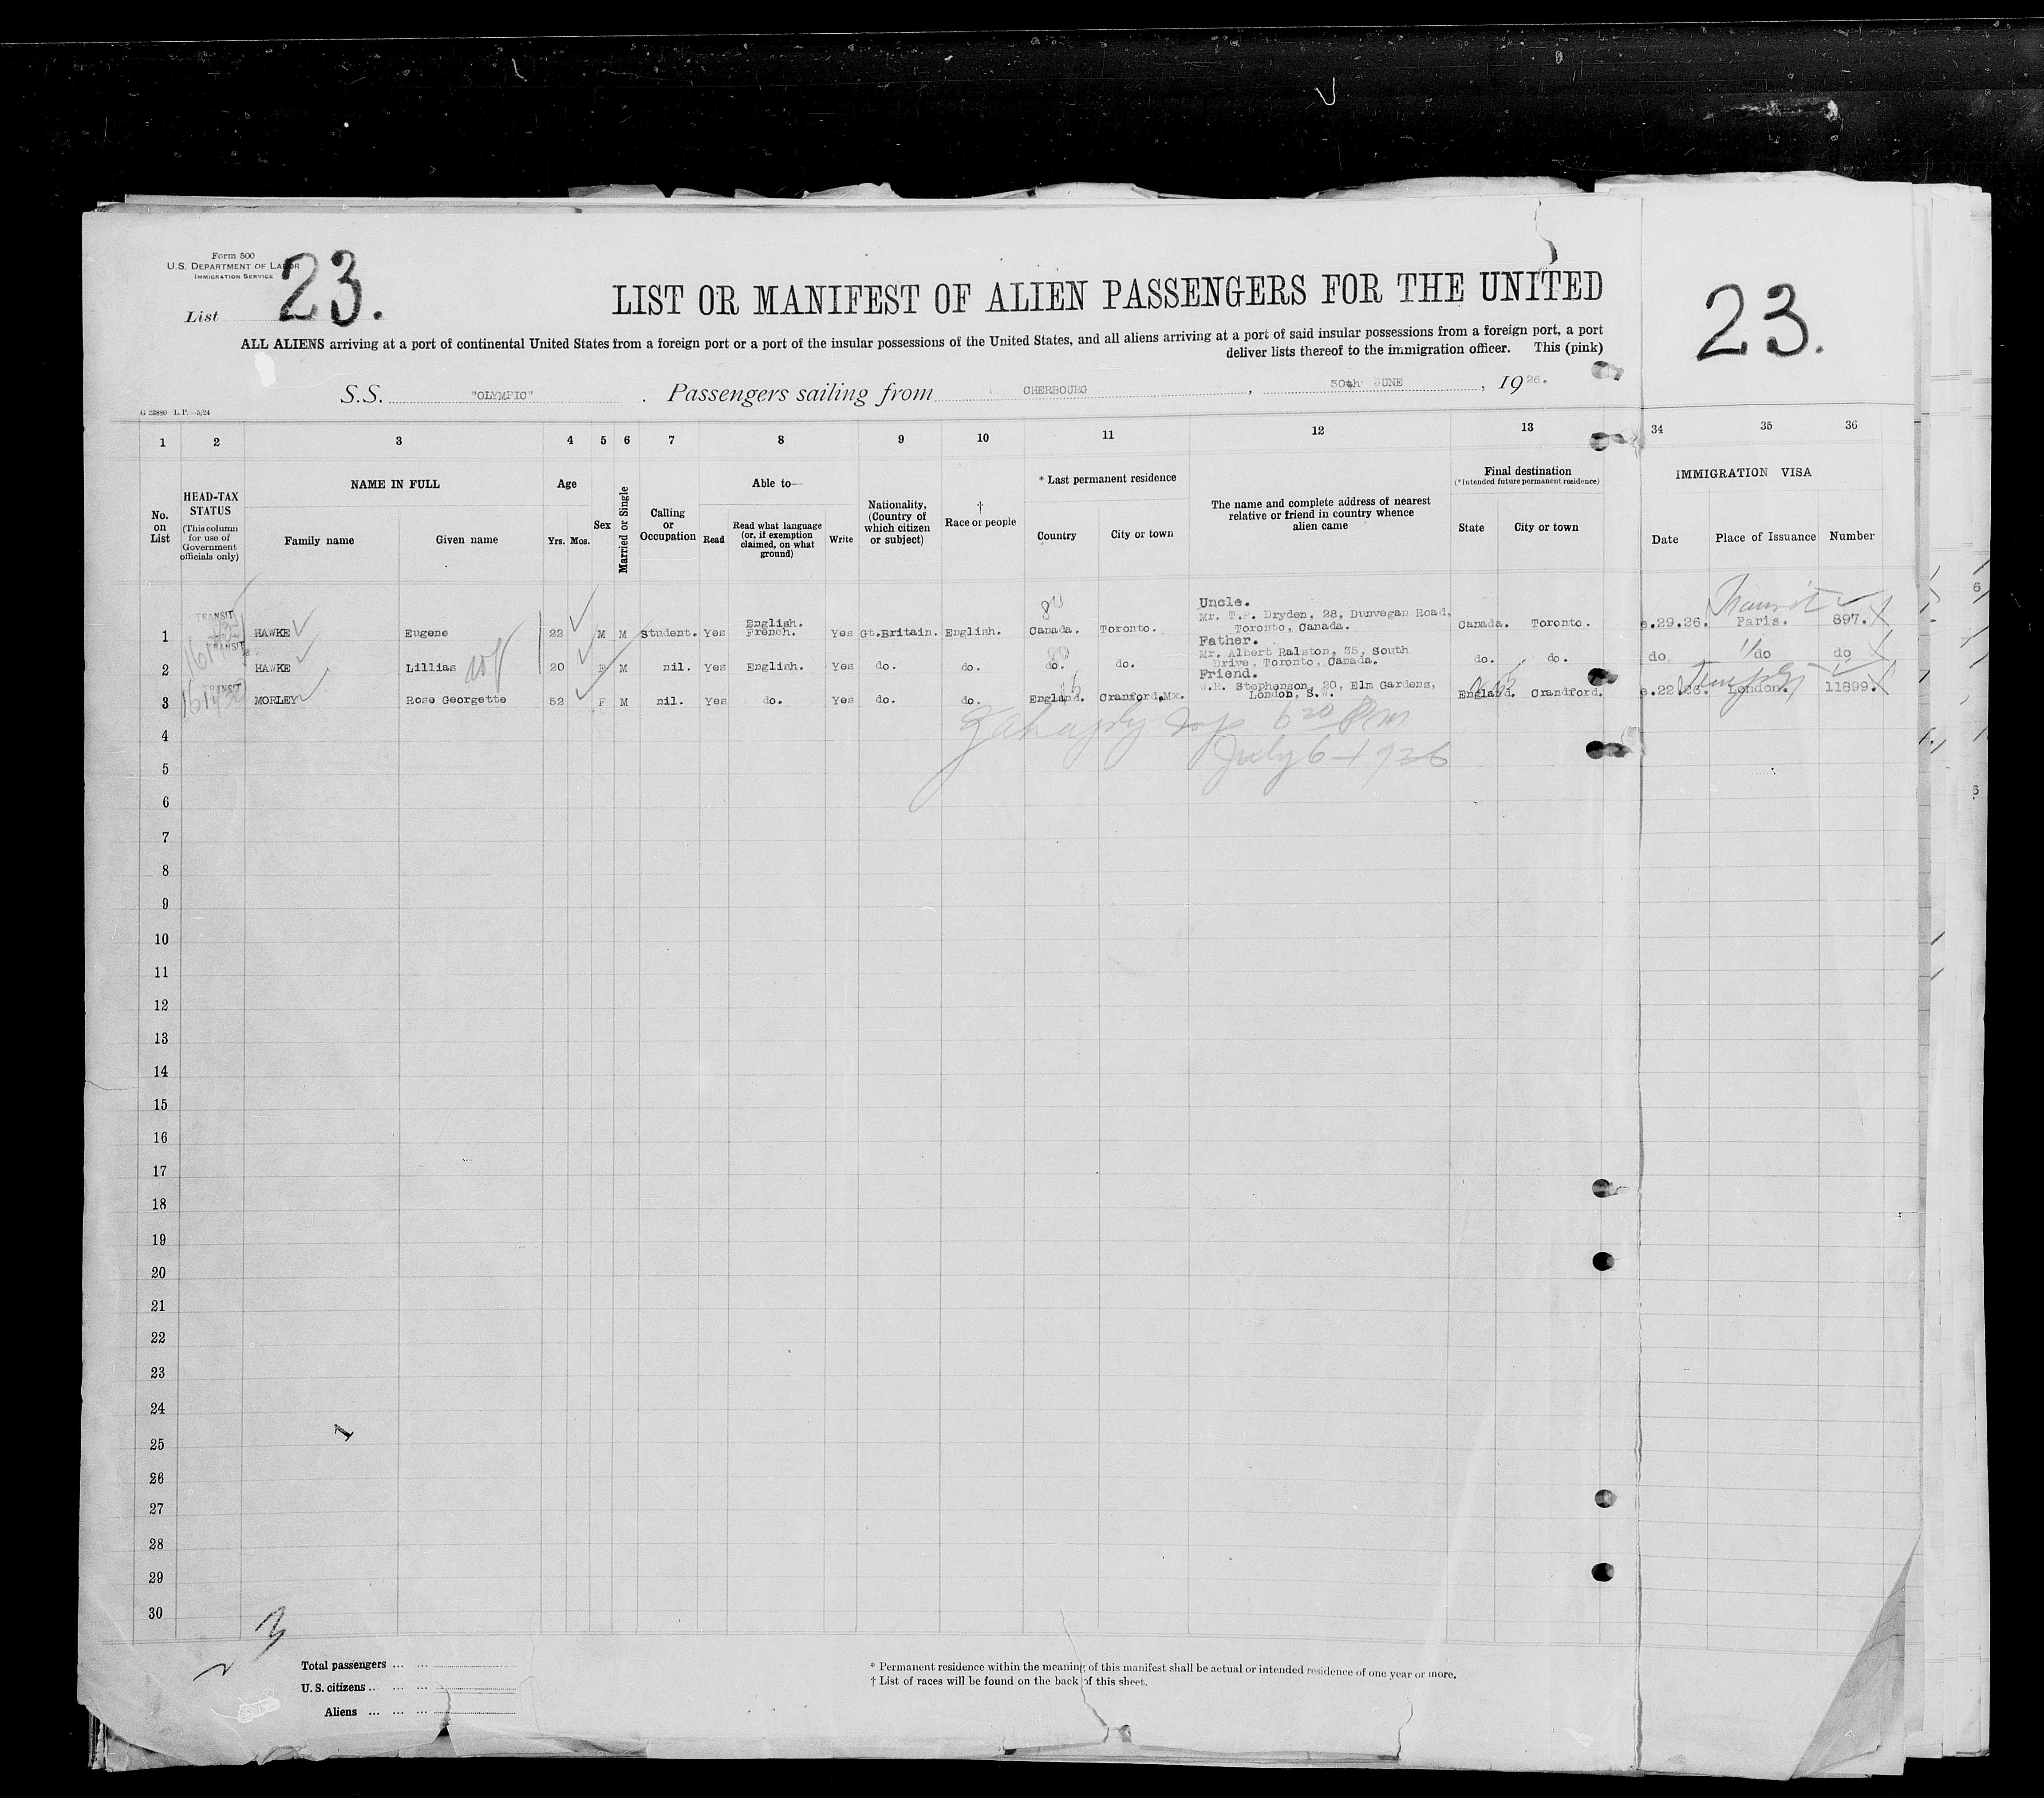 Form 500
U.S. DEPARTMENT OF LABOR
IMMIGRATION SERVICE
List 23.
LIST OR MANIFEST OF ALIEN PASSENGERS FOR THE UNITED
23.
ALL ALIENS arriving at a port of continental United States from a foreign port or a port of the insular possessions of the United States, and all aliens arriving at a port of said insular possessions from a foreign port, a port
deliver lists thereof to the immigration officer. This (pink)
S.S. "OLYMPIC" . Passengers sailing from CHERBOURG , 30th JUNE , 1926.
G 23880 L.P.—5/24
1 2 3 4 5 6 7 8 9 10 11 12 13 34 35 36
No. on List
HEAD-TAX STATUS
(This column for use of Government officials only)
NAME IN FULL
Family name Given name
Age
Yrs. Mos.
Sex
Married or Single
Calling or Occupation
Able to—
Read
Read what language (or, if exemption claimed, on what ground)
Write
Nationality, (Country of which citizen or subject)
† Race or people
* Last permanent residence
Country City or town
The name and complete address of nearest relative or friend in country whence alien came
Final destination
(*Intended future permanent residence)
State City or town
IMMIGRATION VISA
Date Place of Issuance Number
TRANSIT Uncle. Transit
1 HAWKE Eugene 22 M M Student. Yes English. French. Yes Gt.Britain. English. Canada. Toronto. Mr. T.P. Dryden, 28, Dunvegan Road, Toronto, Canada. Canada. Toronto. e.29.26. Paris. 897.
TRANSIT Father.
2 HAWKE Lillias 20 F M nil. Yes English. Yes do. do. do. do. Mr. Albert Ralston, 35, South Drive, Toronto, Canada. do. do. do do do
TRANSIT Friend.
3 MORLEY Rose Georgette 52 F M nil. Yes do. Yes do. do. England. Cranford,Mx. W.R. Stephenson, 20, Elm Gardens, London, S.W. England. Crandford. e.22.26. London. 11899.
4
July 6-1926
5
6
7
8
9
10
11
12
13
14
15
16
17
18
19
20
21
22
23
24
25
26
27
28
29
30
3
Total passengers
U.S. citizens
Aliens
* Permanent residence within the meaning of this manifest shall be actual or intended residence of one year or more.
† List of races will be found on the back of this sheet.